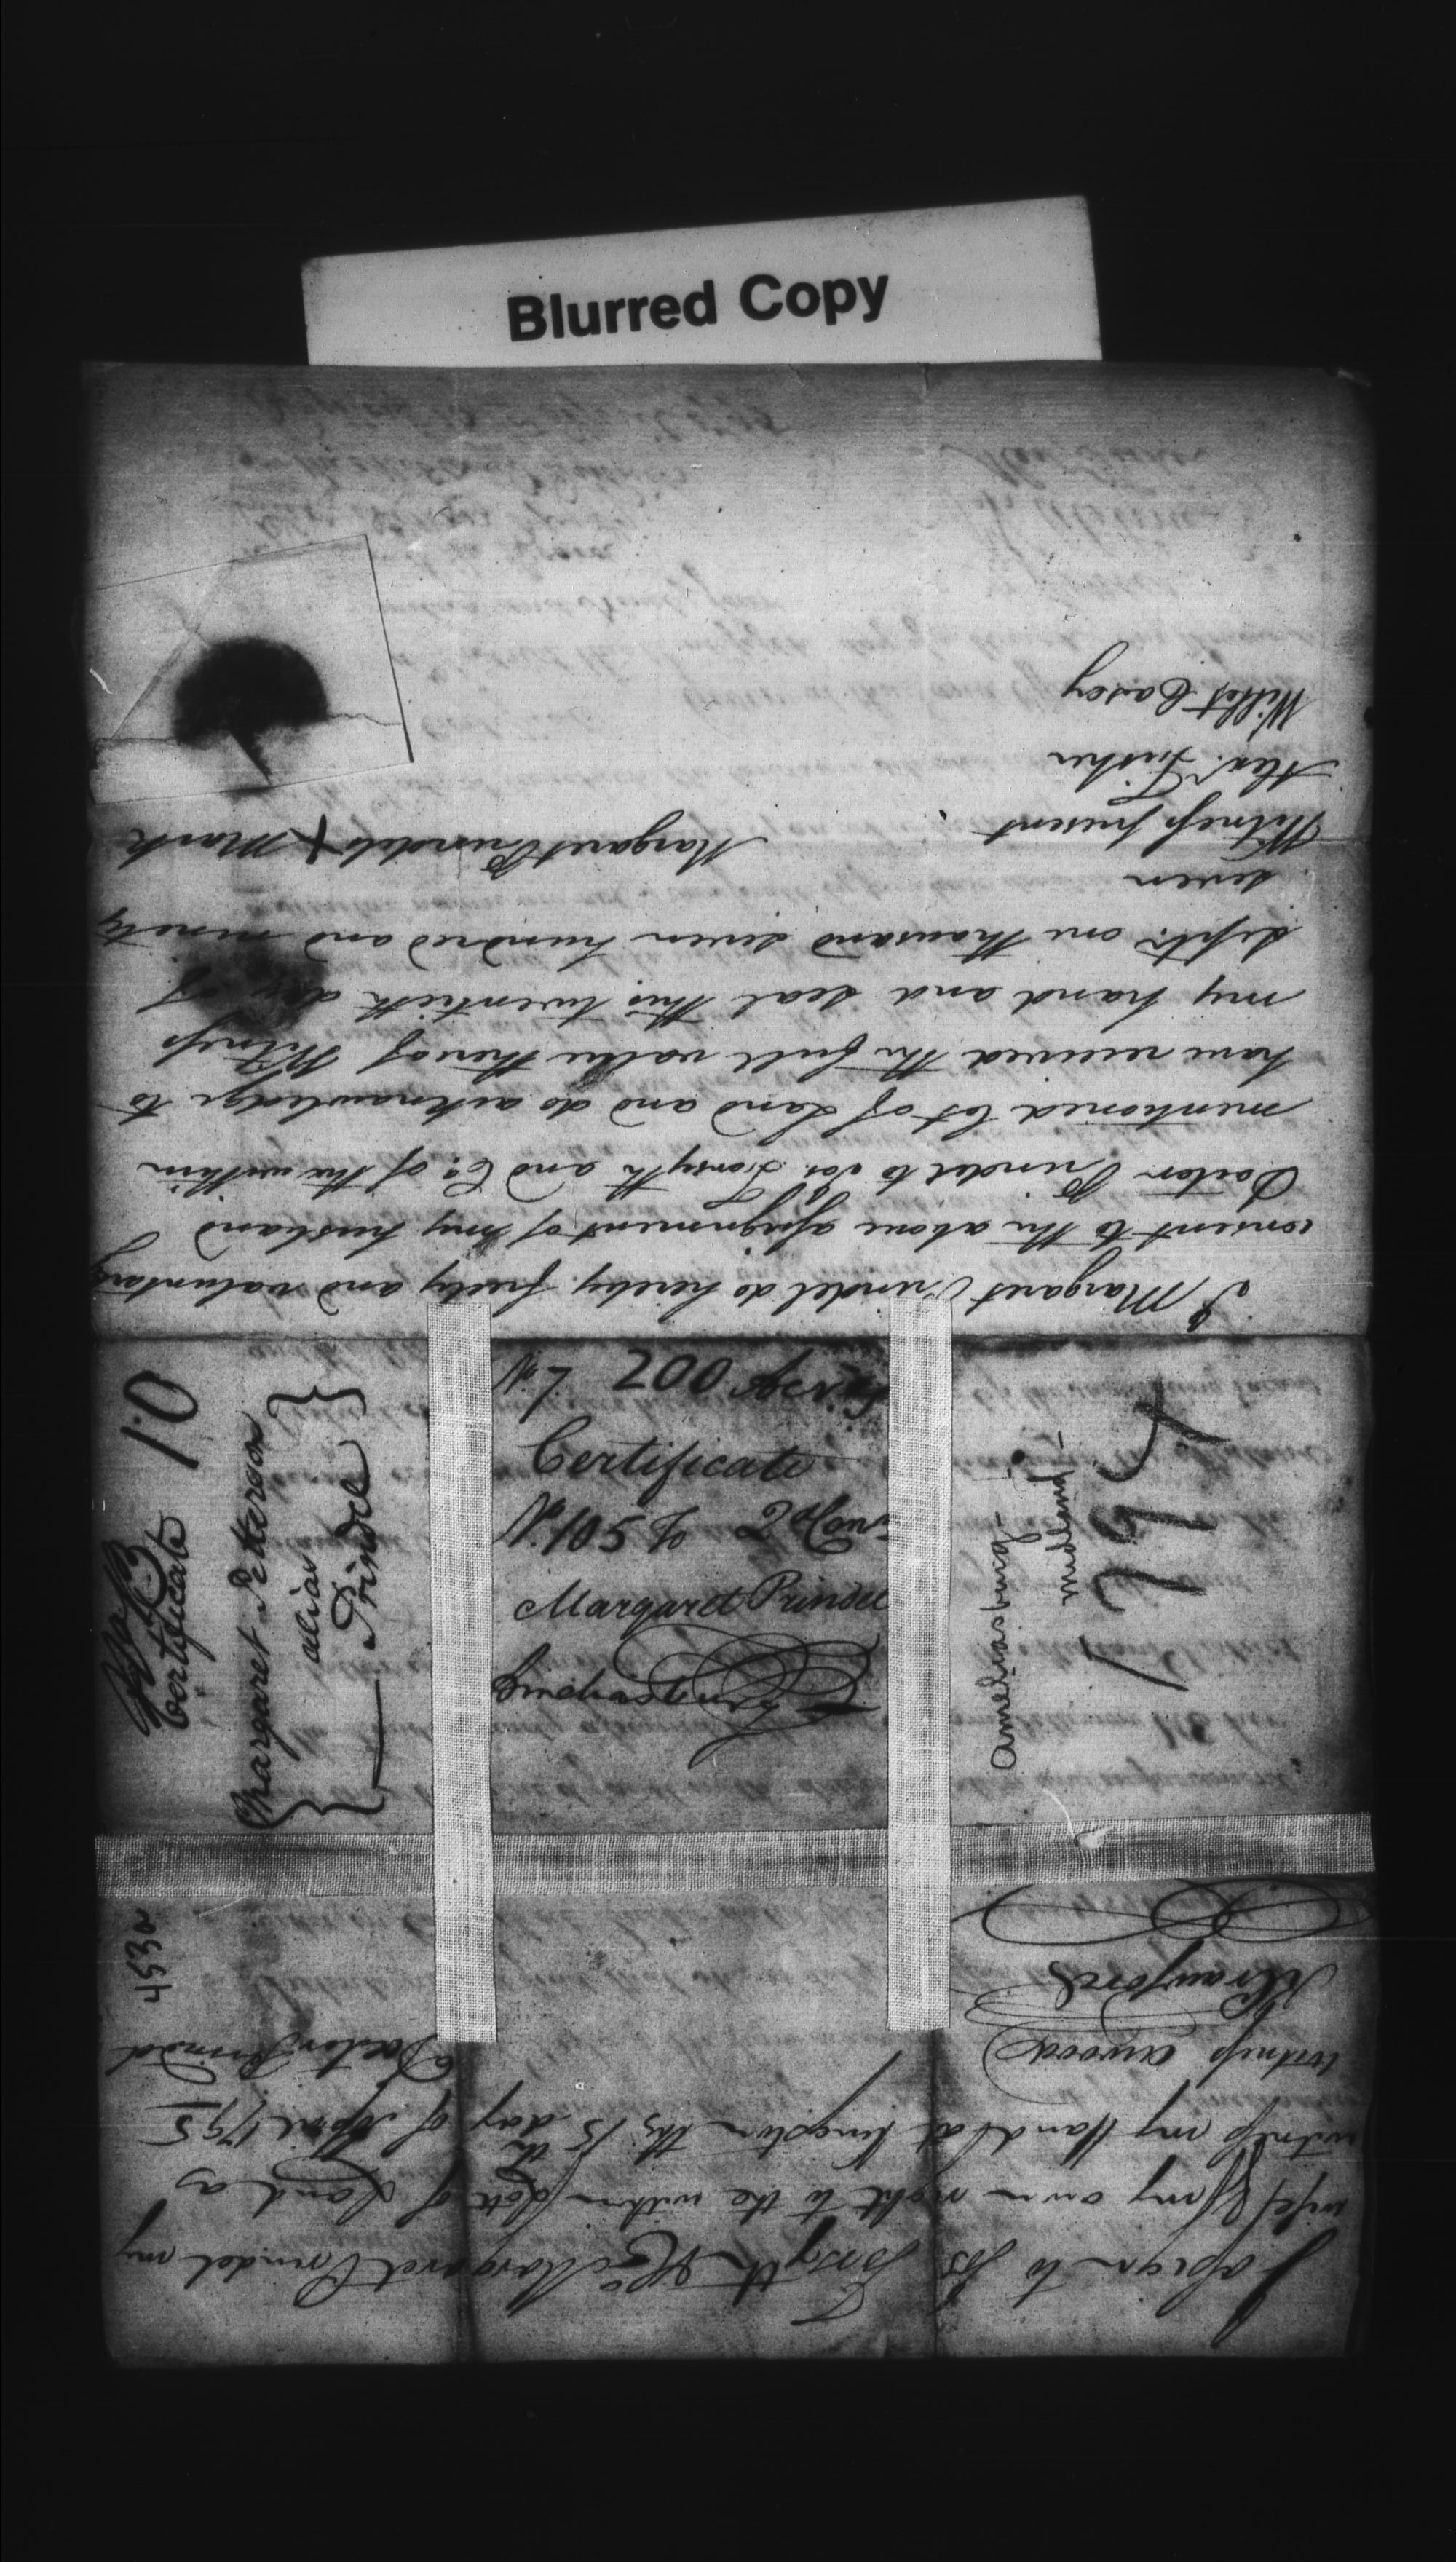 Blurred Copy
I assign to Jos Forsyth & Co Margaret Prindel my
wifes & my own right to the within Lott of Land as
witness my Hand at Kingston this 15th day of April 1795
witness
Doctor Prindel
Crawford
453a
I Margaret Prindel do hereby freely and voluntary
consent to the above assignment of my husband
Doctor Prindel to Jos. Forsyth and Co: of the within
mentioned Lot of Land and do acknowledge to
have received the full value thereof Witness
my hand and seal this twentieth day of
Septr. one thousand seven hundred and ninety
seven
Witness present
Margaret Prindels X Mark
Alexr. Fisher
Willet Casey
No. 7 200 Acres
Certificate
No. 105 2d Con
Margaret Prindel
10
Certificate
Margaret Petterson
alias
Prindel
Ameliasburg -
Midland -
1794